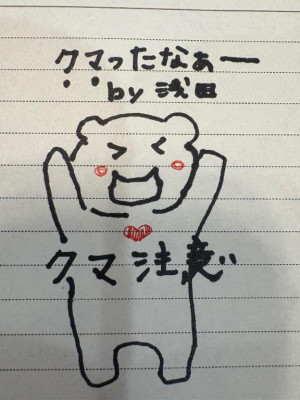 クマったなぁー
by 浅田
クマ注意